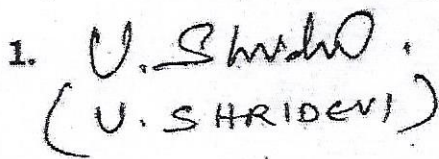 1. U. Shridevi.
(U. SHRIDEVI)